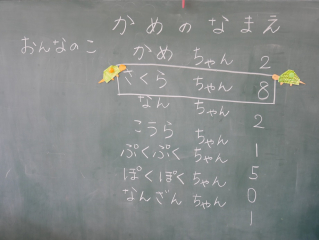 かめのなまえ
おんなのこ
かめ ちゃん 2
さくら ちゃん 8
なん ちゃん 2
こうら ちゃん 1
ぷくぷく ちゃん 5
ぽくぽく ちゃん 0
なんざん ちゃん 1